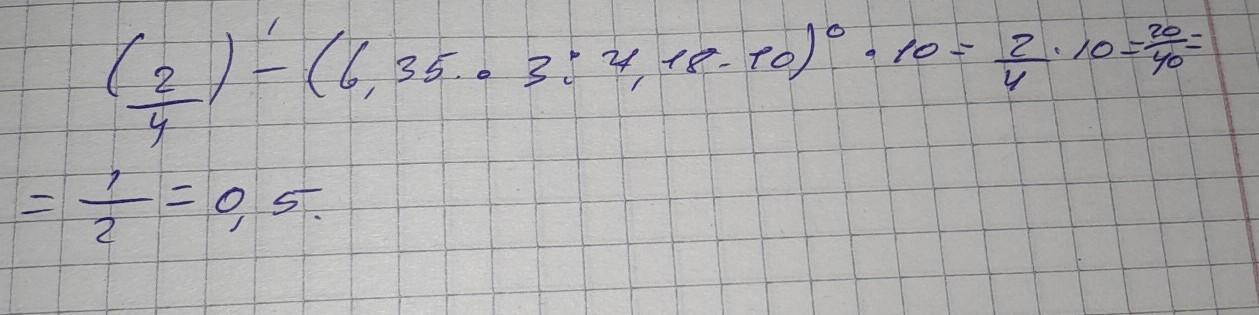 (2/4)¹ - (6,35 · 3 : 4,18 - 10)⁰ · 10 = 2/4 · 10 = 20/40 =
= 1/2 = 0,5.